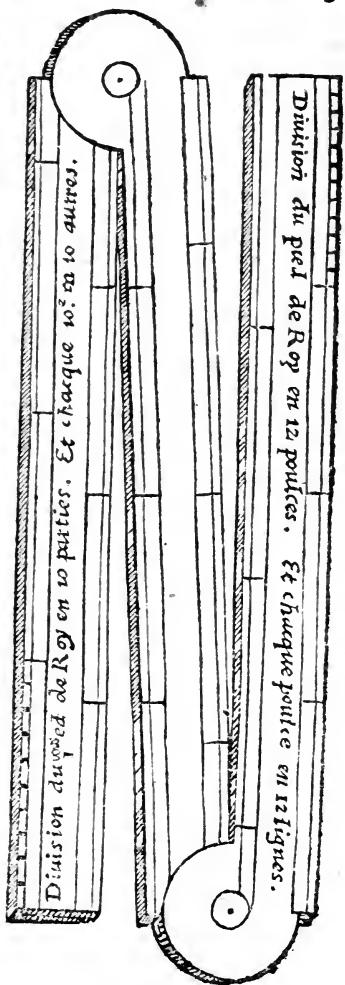 Diuision du pied de Roy en 10 parties. Et chacque 10ᵉ en 10 autres.
Diuision du pied de Roy en 12 poulces. Et chacque poulce en 12 lignes.